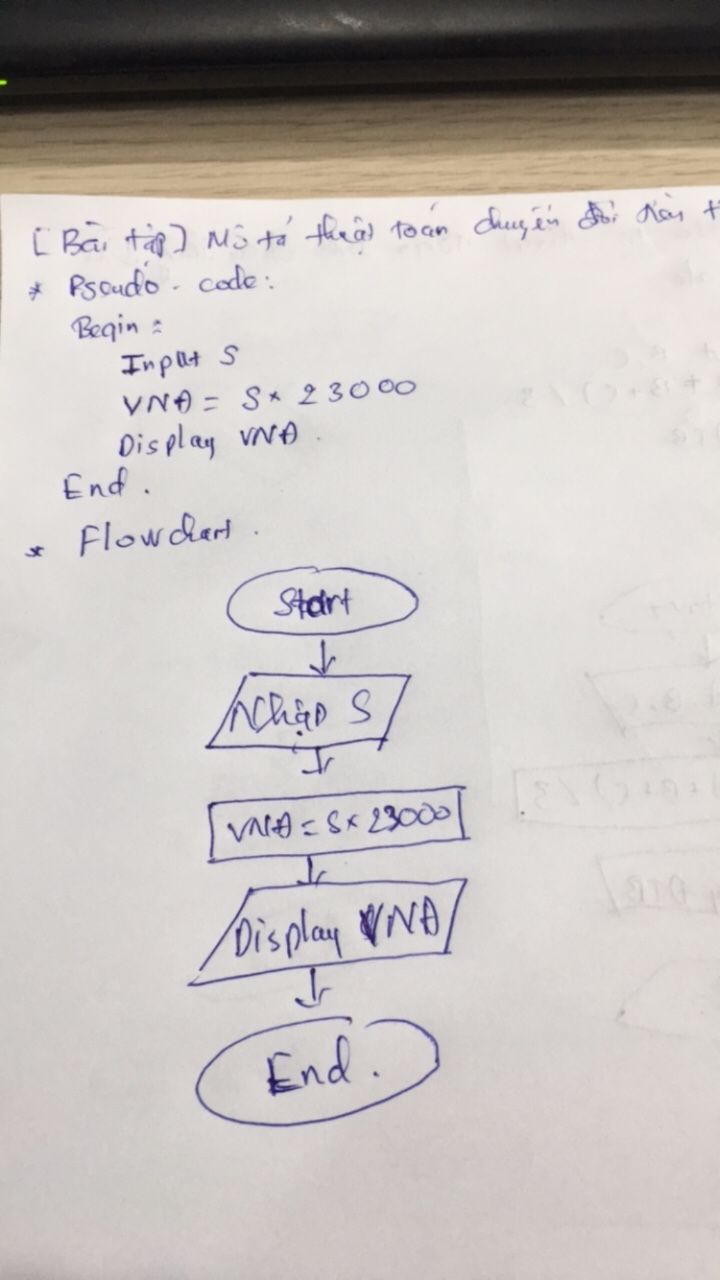 [Bài tập] Mô tả thuật toán chuyển đổi tiền t
* Pseudo - code:
Begin:
Input S
VNĐ = S * 23000
Display VNĐ.
End.
* Flowchart.
Start
Nhập S
VNĐ = S * 23000
Display VNĐ
End.